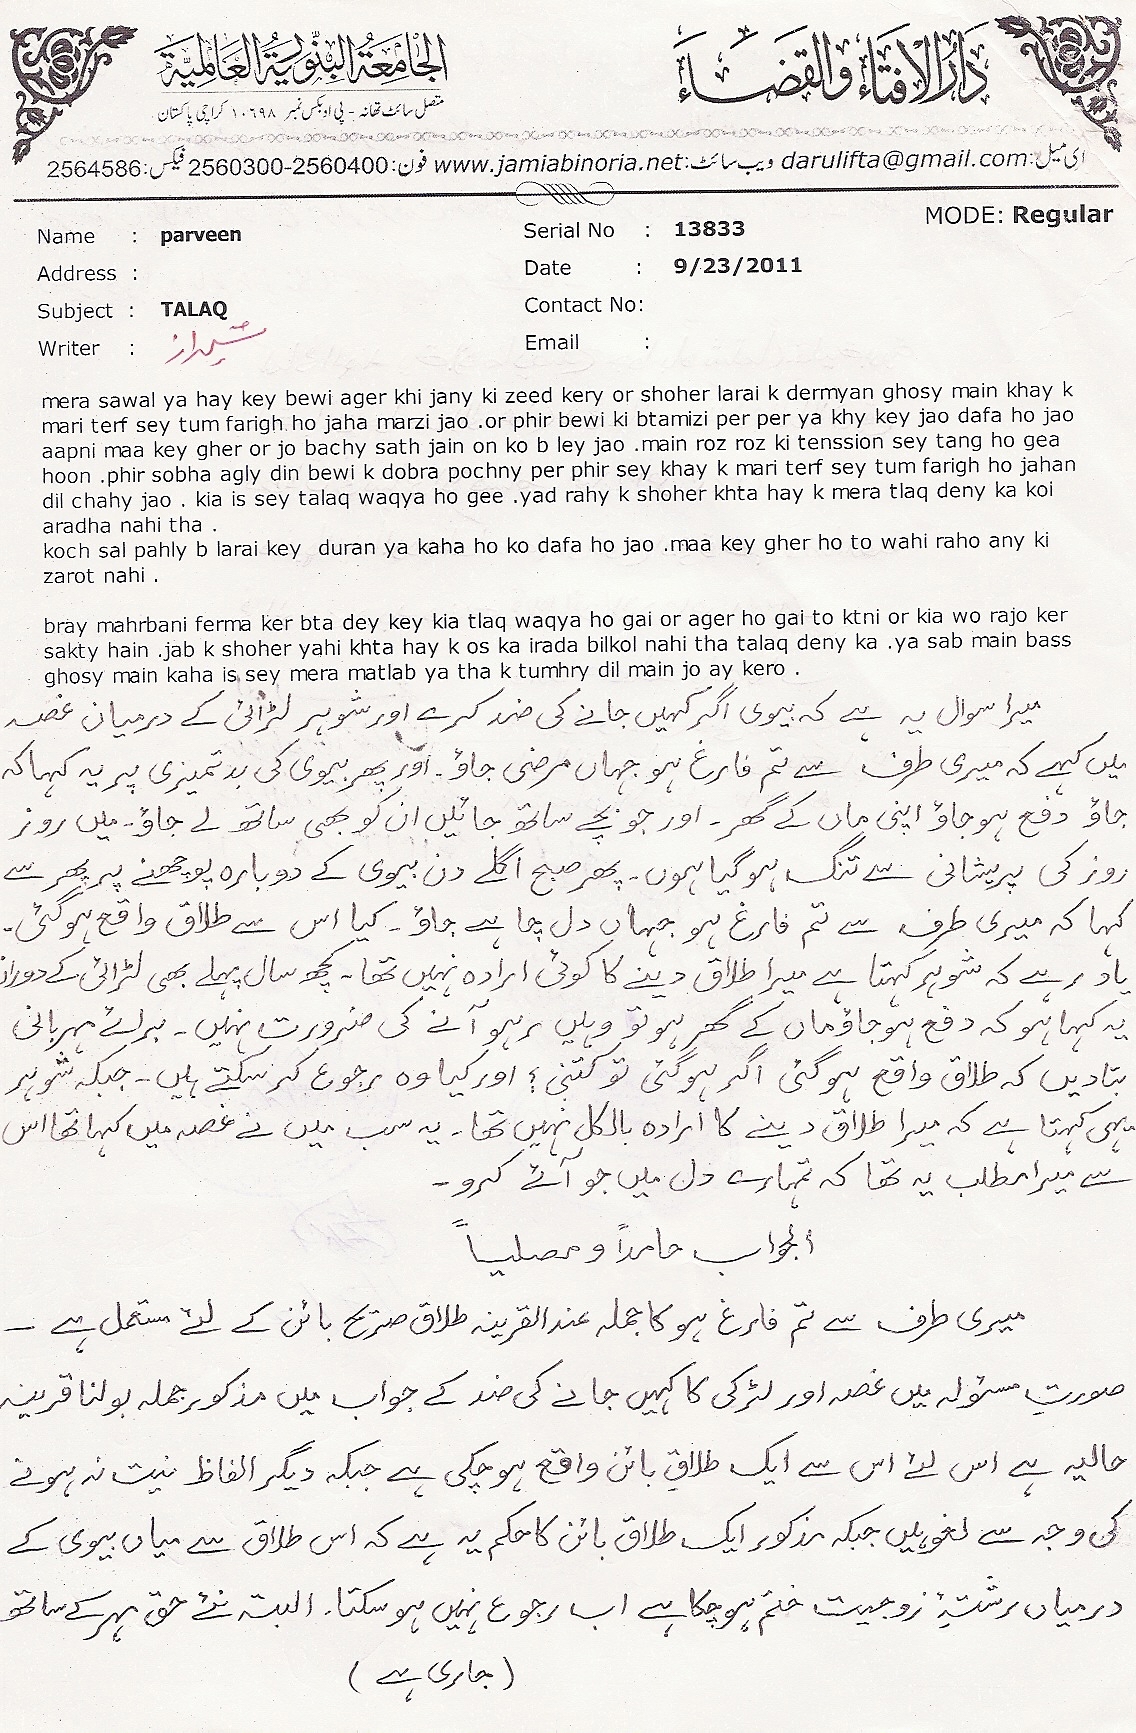 دَارُالافتَاء وَالقضَاء
الجَامعَةُ البِنّورِيَة العَالمِيَّة
متصل سائٹ تھانہ - پی او بکس نمبر ۱۰۶۹۸ کراچی پاکستان
ای میل:darulifta@gmail.com ویب سائٹ:www.jamiabinoria.net فون:2560300-2560400 فیکس:2564586
MODE: Regular
Name : parveen
Serial No : 13833
Address :
Date : 9/23/2011
Subject : TALAQ
Contact No:
Writer : شیراز
Email :
mera sawal ya hay key bewi ager khi jany ki zeed kery or shoher larai k dermyan ghosy main khay k
mari terf sey tum farigh ho jaha marzi jao .or phir bewi ki btamizi per per ya khy key jao dafa ho jao
aapni maa key gher or jo bachy sath jain on ko b ley jao .main roz roz ki tenssion sey tang ho gea
hoon .phir sobha agly din bewi k dobra pochny per phir sey khay k mari terf sey tum farigh ho jahan
dil chahy jao . kia is sey talaq waqya ho gee .yad rahy k shoher khta hay k mera tlaq deny ka koi
aradha nahi tha .
koch sal pahly b larai key duran ya kaha ho ko dafa ho jao .maa key gher ho to wahi raho any ki
zarot nahi .
bray mahrbani ferma ker bta dey key kia tlaq waqya ho gai or ager ho gai to ktni or kia wo rajo ker
sakty hain .jab k shoher yahi khta hay k os ka irada bilkol nahi tha talaq deny ka .ya sab main bass
ghosy main kaha is sey mera matlab ya tha k tumhry dil main jo ay kero .
میرا سوال یہ ہے کہ بیوی اگر کہیں جانے کی ضد کرے اور شوہر لڑائی کے درمیان غصہ
میں کہے کہ میری طرف سے تم فارغ ہو جہاں مرضی جاؤ۔ اور پھر بیوی کی بدتمیزی پر یہ کہا کہ
جاؤ دفع ہو جاؤ اپنی ماں کے گھر۔ اور جو بچے ساتھ جائیں ان کو بھی ساتھ لے جاؤ۔ میں روز
روز کی پریشانی سے تنگ ہو گیا ہوں۔ پھر صبح اگلے دن بیوی کے دوبارہ پوچھنے پر پھر سے
کہا کہ میری طرف سے تم فارغ ہو جہاں دل چاہے جاؤ۔ کیا اس سے طلاق واقع ہو گئی۔
یاد رہے کہ شوہر کہتا ہے میرا طلاق دینے کا کوئی ارادہ نہیں تھا۔ کچھ سال پہلے بھی لڑائی کے دوران
یہ کہا ہو کہ دفع ہو جاؤ ماں کے گھر ہو تو وہیں رہو آنے کی ضرورت نہیں۔ برائے مہربانی
بتادیں کہ طلاق واقع ہو گئی اگر ہو گئی تو کتنی؟ اور کیا وہ رجوع کر سکتے ہیں۔ جبکہ شوہر
یہی کہتا ہے کہ میرا طلاق دینے کا ارادہ بالکل نہیں تھا۔ یہ سب میں نے غصہ میں کہا تھا اس
سے میرا مطلب یہ تھا کہ تمہارے دل میں جو آئے کرو۔
الجواب حامداً و مصلیاً
میری طرف سے تم فارغ ہو کا جملہ عند القرینہ طلاق صریح بائن کے لئے مستعمل ہے ۔
صورتِ مسئولہ میں غصہ اور لڑکی کا کہیں جانے کی ضد کے جواب میں مذکور جملہ بولنا قرینہ
حالیہ ہے اس لئے اس سے ایک طلاقِ بائن واقع ہو چکی ہے جبکہ دیگر الفاظ نیت نہ ہونے
کی وجہ سے لغو ہیں جبکہ مذکور ایک طلاق بائن کا حکم یہ ہے کہ اس طلاق سے میاں بیوی کے
درمیاں رشتۂ زوجیت ختم ہو چکا ہے اب رجوع نہیں ہو سکتا۔ البتہ نئے حق مہر کے ساتھ
(جاری ہے)